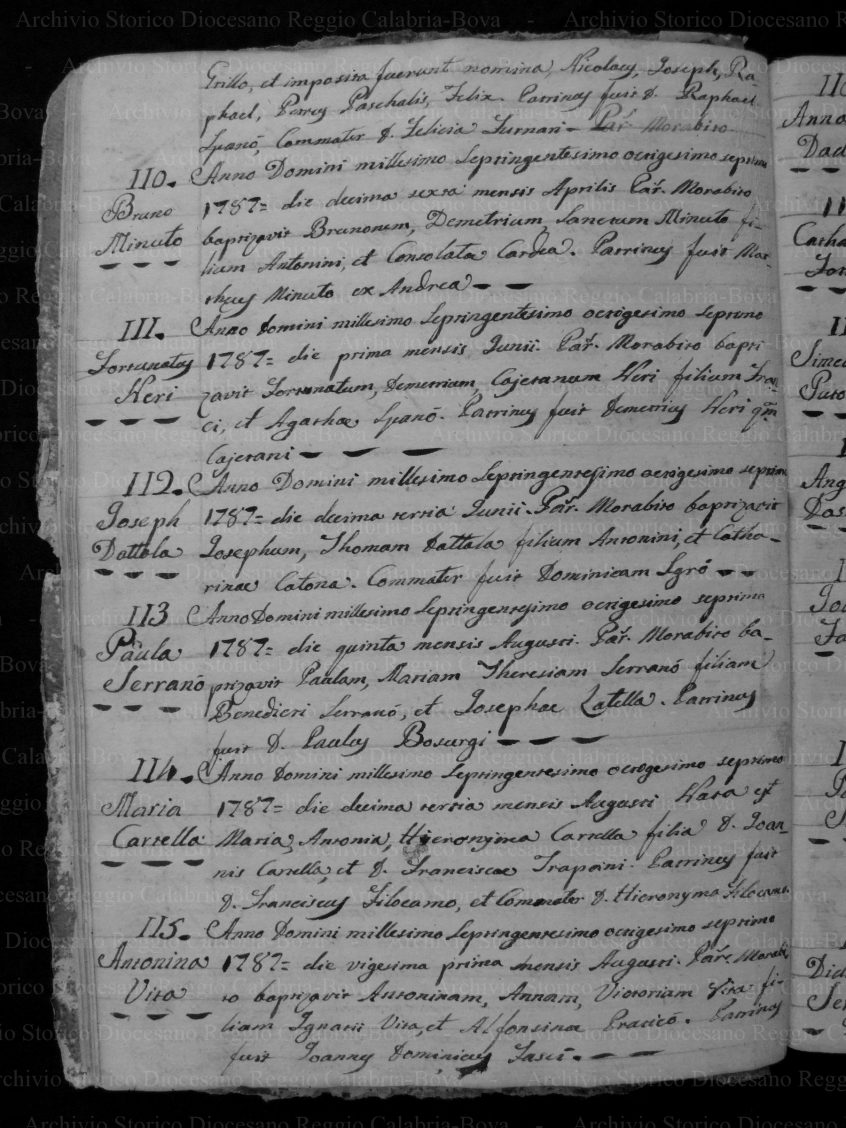 Grillo, et imposita fuerunt nomina, Nicolaus, Joseph, Ra-
phael, Petrus Paschalis, Felix. Patrinus fuit D. Raphael
Spanò, Commater D. Felicia Furnari - Par. Morabito
110. Anno Domini millesimo Septingentesimo octigesimo septimo
Bruno
Minuto
1787= die decima sexta mensis Aprilis Par. Morabito
baptizavit Brunonum, Demetrium, Sanctum Minuto fi-
lium Antonini, et Consolata Cardea. Patrinus fuit Mat-
theus Minuto ex Andrea
111. Anno Domini millesimo Septingentesimo octigesimo septimo
Fortunatus
Neri
1787= die prima mensis Junii. Par. Morabito bapti
zavit Fortunatum, Demetrium, Cajetanum Neri filium Fran
ci, et Agathae Spanò. Patrinus fuit Demetrius Neri qm
Cajetani
112. Anno Domini millesimo Septingentesimo octigesimo septimo
Joseph
Dattola
1787= die decima tertia Junii. Par. Morabito baptizavit
Josephum, Thomam Dattola filium Antonini, et Catha-
rinae Catona. Commater fuit Dominicam Sgrò
113 Anno Domini millesimo Septingentesimo octigesimo septimo
Paula
Serranò
1787= die quinta mensis Augusti. Par. Morabito ba-
ptizavit Paulam, Mariam Theresiam Serranò filiam
Benedicti Serranò, et Josephae Latella. Patrinus
fuit D. Paulus Bosurgi
114. Anno Domini millesimo Septingentesimo octogesimo septimo
Maria
Cartella
1787= die decima tertia mensis Augusti Nata est
Maria, Antonia, Hieronyma Cartella filia D. Joan-
nis Cartella, et D. Franciscae Trapani. Patrinus fuit
D. Franciscus Filocamo, et Commater D. Hieronyma Filocamo
115. Anno Domini millesimo Septingentesimo octigesimo septimo
Antonina
Vita
1787= die vigesima prima mensis Augusti. Par. Morabi
to baptizavit Antoninam, Annam, Victoriam Vita fi-
liam Ignatii Vita, et Alfonsina Praticò. Patrinus
fuit Joannes Dominicus Fascì.
Archivio Storico Diocesano Reggio Calabria-Bova